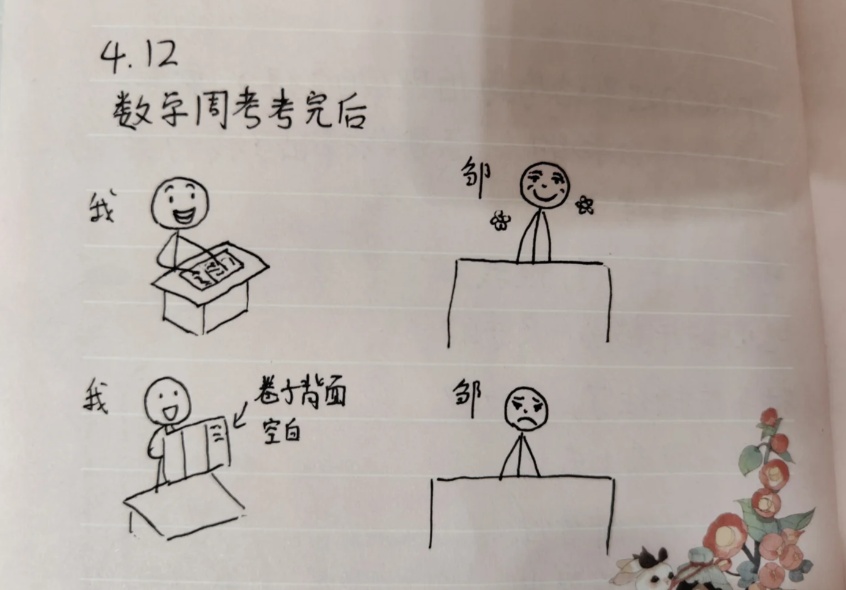 4.12
数学周考考完后
我
邹
我
卷子背面
空白
邹